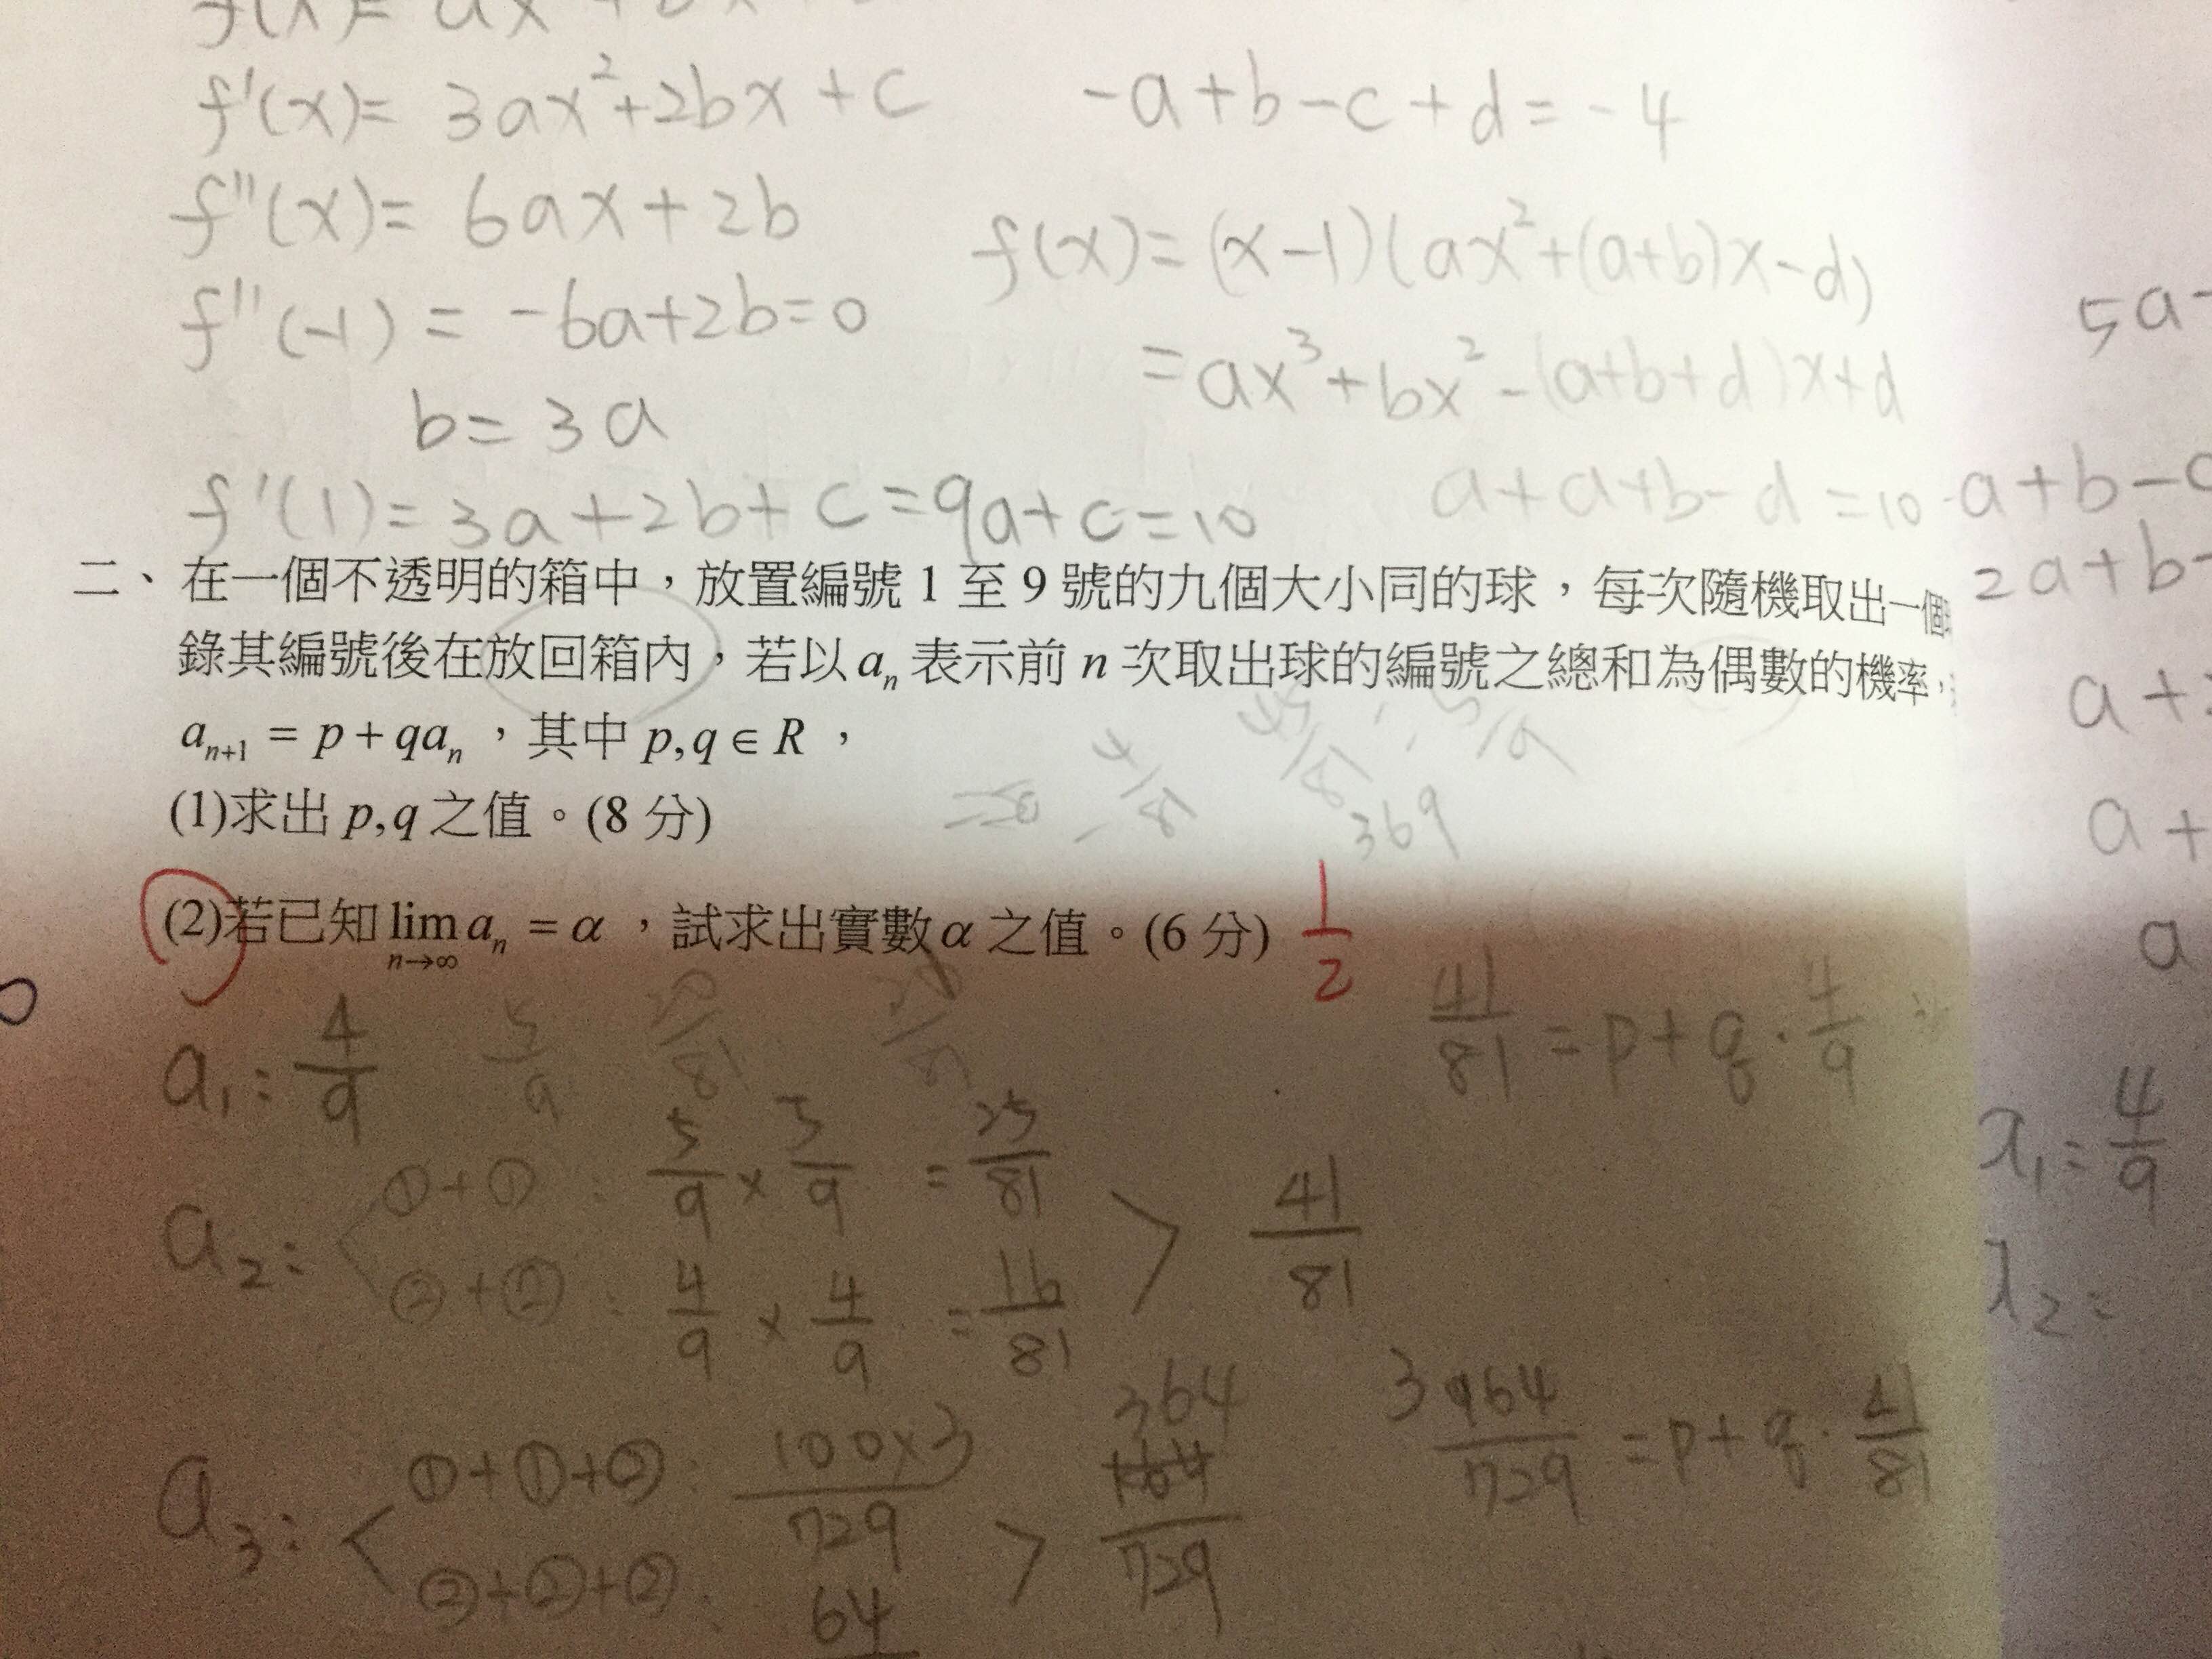 f(x)= ax
f'(x)= 3ax²+2bx+c
-a+b-c+d=-4
f''(x)= 6ax+2b
f(x)=(x-1)(ax²+(a+b)x-d)
f''(-1)= -6a+2b=0
=ax³+bx²-(a+b+d)x+d
5a-
b=3a
f'(1)=3a+2b+c=9a+c=10
a+a+b-d=10
-a+b-c
二、在一個不透明的箱中，放置編號1至9號的九個大小同的球，每次隨機取出一個
2a+b-
錄其編號後在放回箱內，若以 aₙ 表示前 n 次取出球的編號之總和為偶數的機率，
a+
aₙ₊₁ = p+qaₙ，其中 p,q∈R，
(1)求出 p,q 之值。(8 分)
369
a+
(2)若已知 lim n→∞ aₙ = α，試求出實數 α 之值。(6 分) 1/2
a
a₁: 4/9 5/9
41/81 = p+q·4/9
x₁= 4/9
a₂: ①+① : 5/9 × 5/9 = 25/81
②+② : 4/9 × 4/9 = 16/81
> 41/81
x₂=
a₃: ①+①+②: 100×3/729
②+②+②: 64
> 364/729
364/729 = p+q·41/81